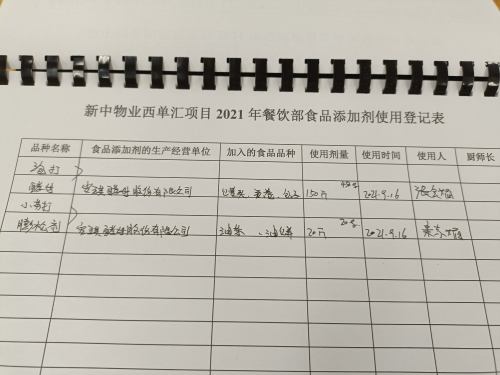 新中物业西单汇项目 2021 年餐饮部食品添加剂使用登记表
品种名称 食品添加剂的生产经营单位 加入的食品品种 使用剂量 使用时间 使用人 厨师长
泡打
酵母 安琪酵母股份有限公司 包子 150万 2021.9.16
小苏打
膨松剂 安琪酵母股份有限公司 油条、油饼 20万 20克 2021.9.16